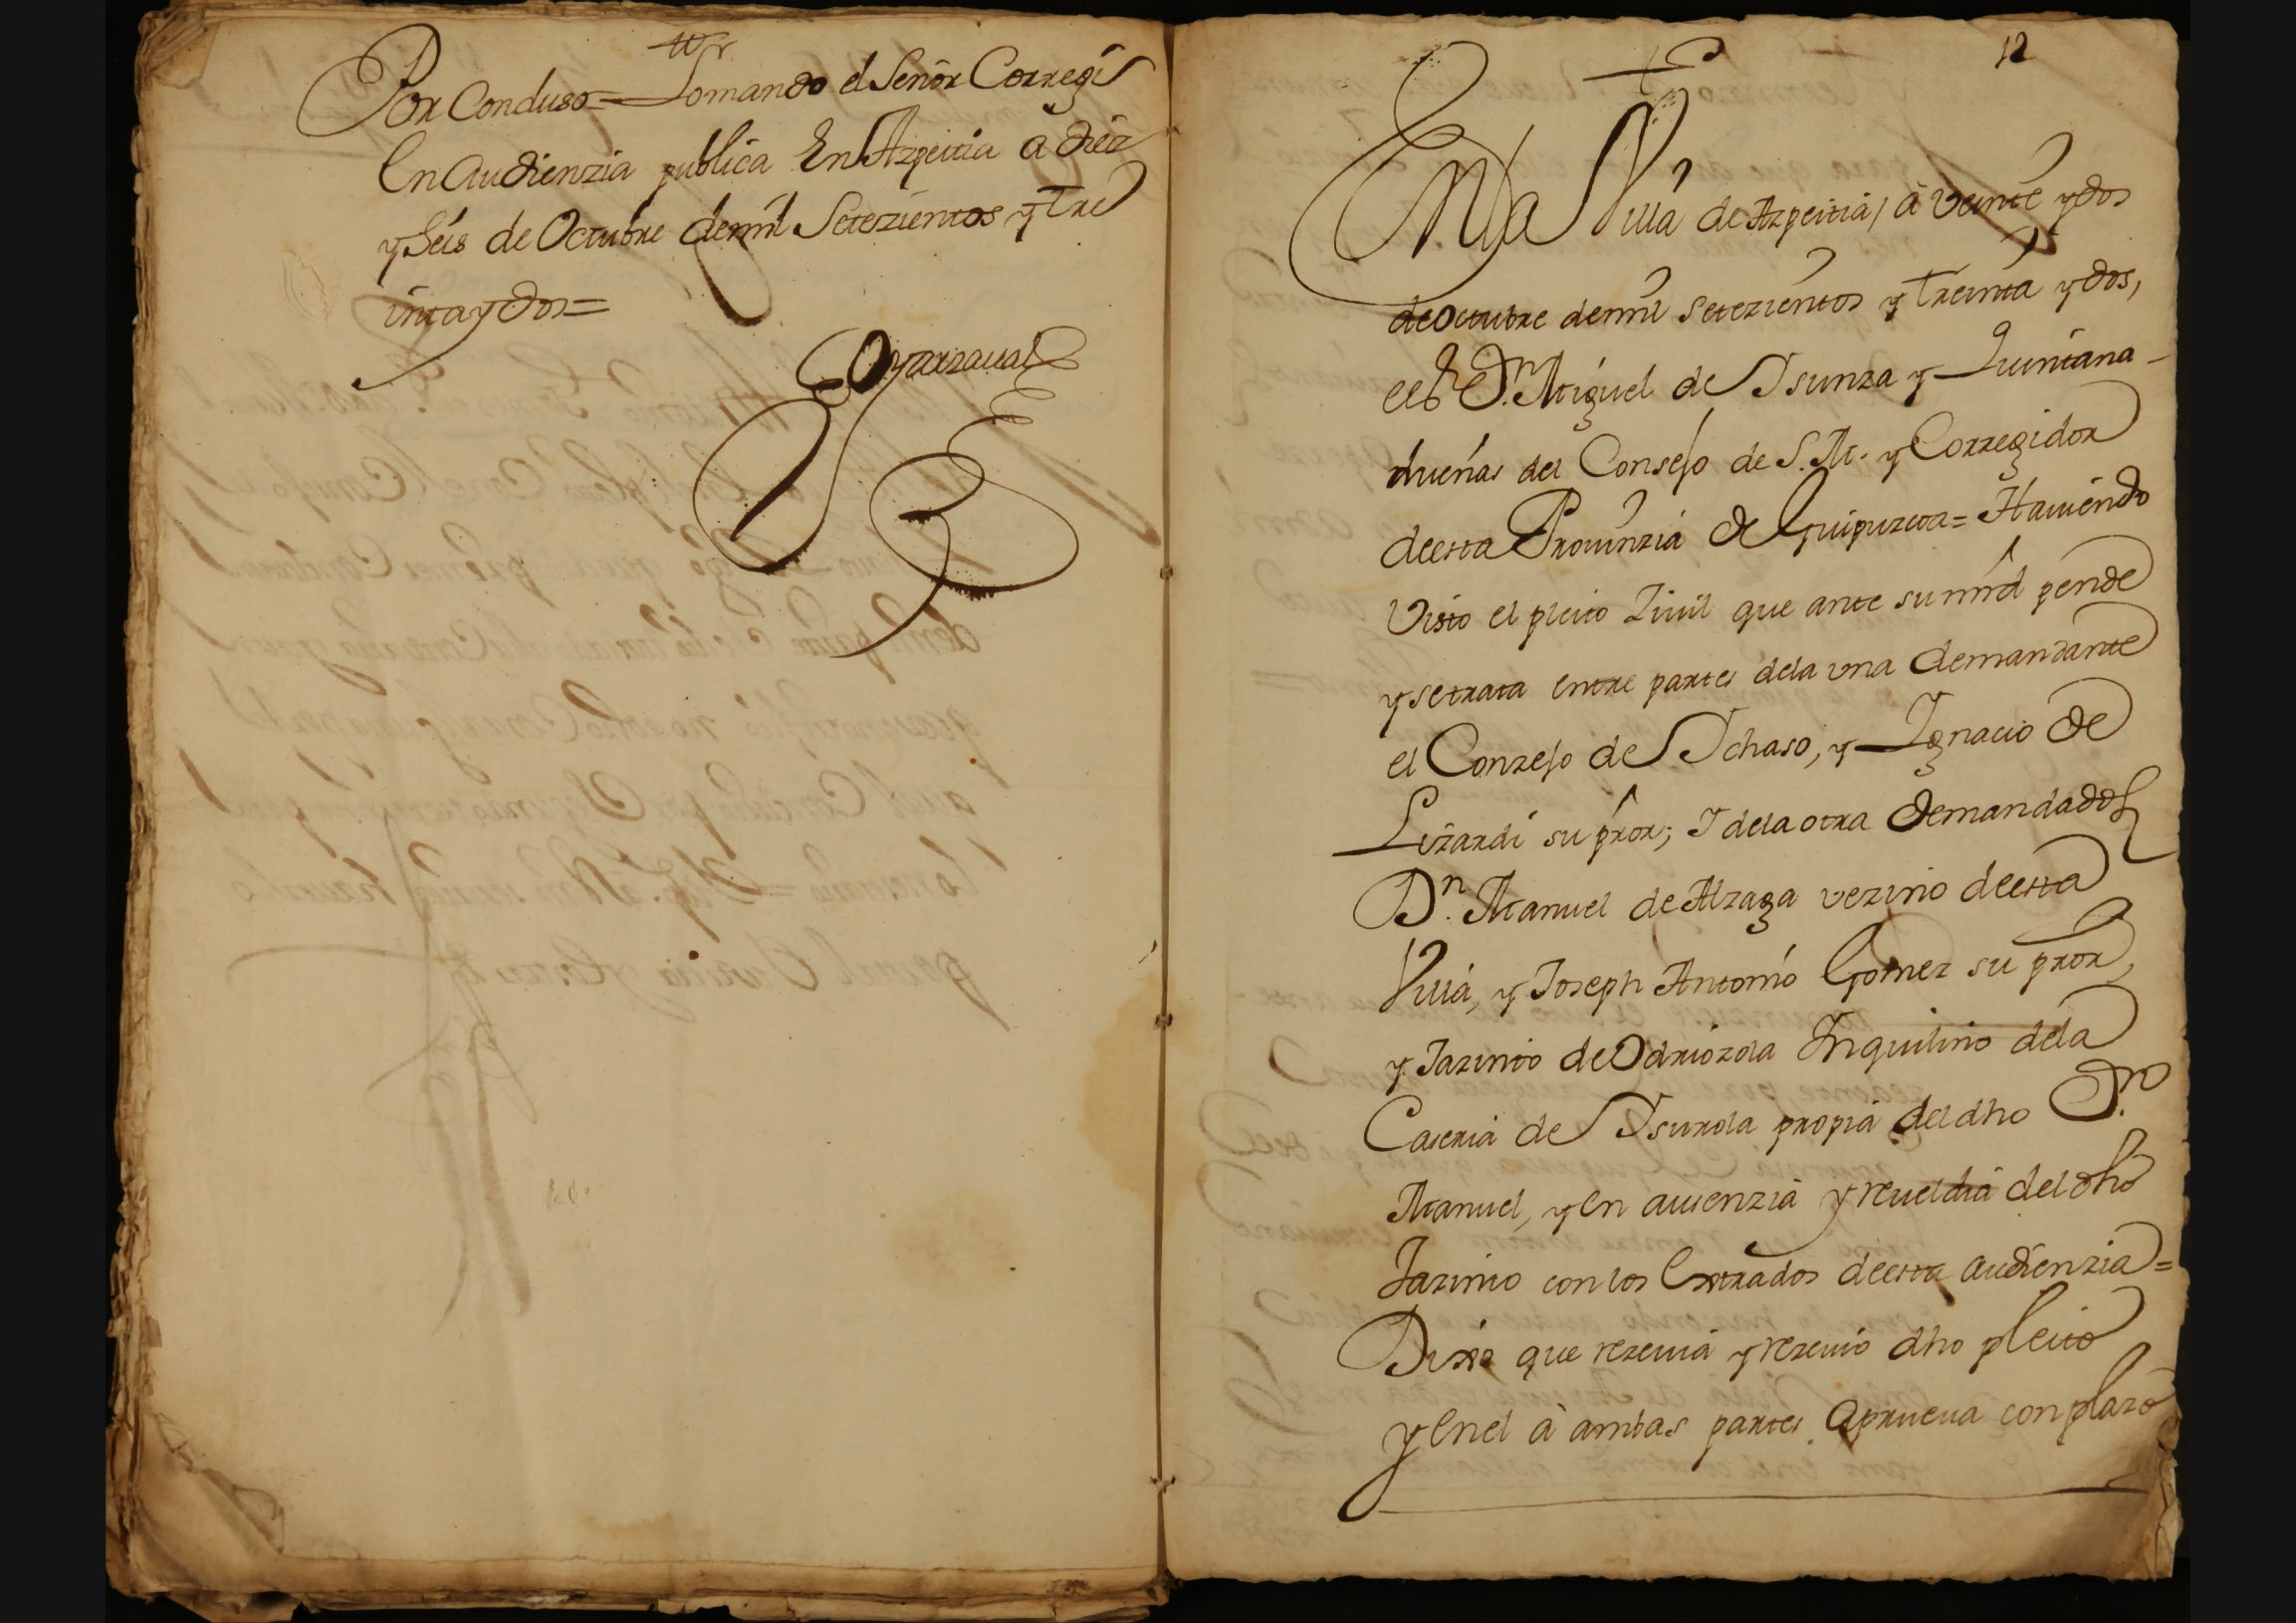 Por Concluso = Lo mando el Señor Corregr
En audienzia publica En Azpeitia à diez
y Seis de Octubre de mil Setezientos y Tre
inta y dos =
Oyarzaual
12
En la Villa de Azpeitia, à veinte y dos
de octubre de mil setezientos y treinta y dos,
el Sr Dn. Miguel de Ysunza y Quintana-
dueñas del Consejo de S. M. y Corregidor
de esta Prouinzia de Guipuzcoa = Hauiendo
Visto el pleito Ziuil que ante su mrd pende
y se trata entre partes de la vna demandante
el Conzejo de Ychaso, y Ygnacio de
Lizardi su pror; Y de la otra demandados
Dn. Manuel de Alzaga vezino de esta
Villa, y Joseph Antonio Gomez su pror,
y Jazinto de Odriozola Ynquilino de la
Caseria de Ysurola propia del dho Dn.
Manuel, y en ausenzia y reueldia del dho
Jazinto con los Extrados de esta audienzia =
Dixo que rezeuia y rezeuio dho pleito
y en el à ambas partes aprueua con plazo